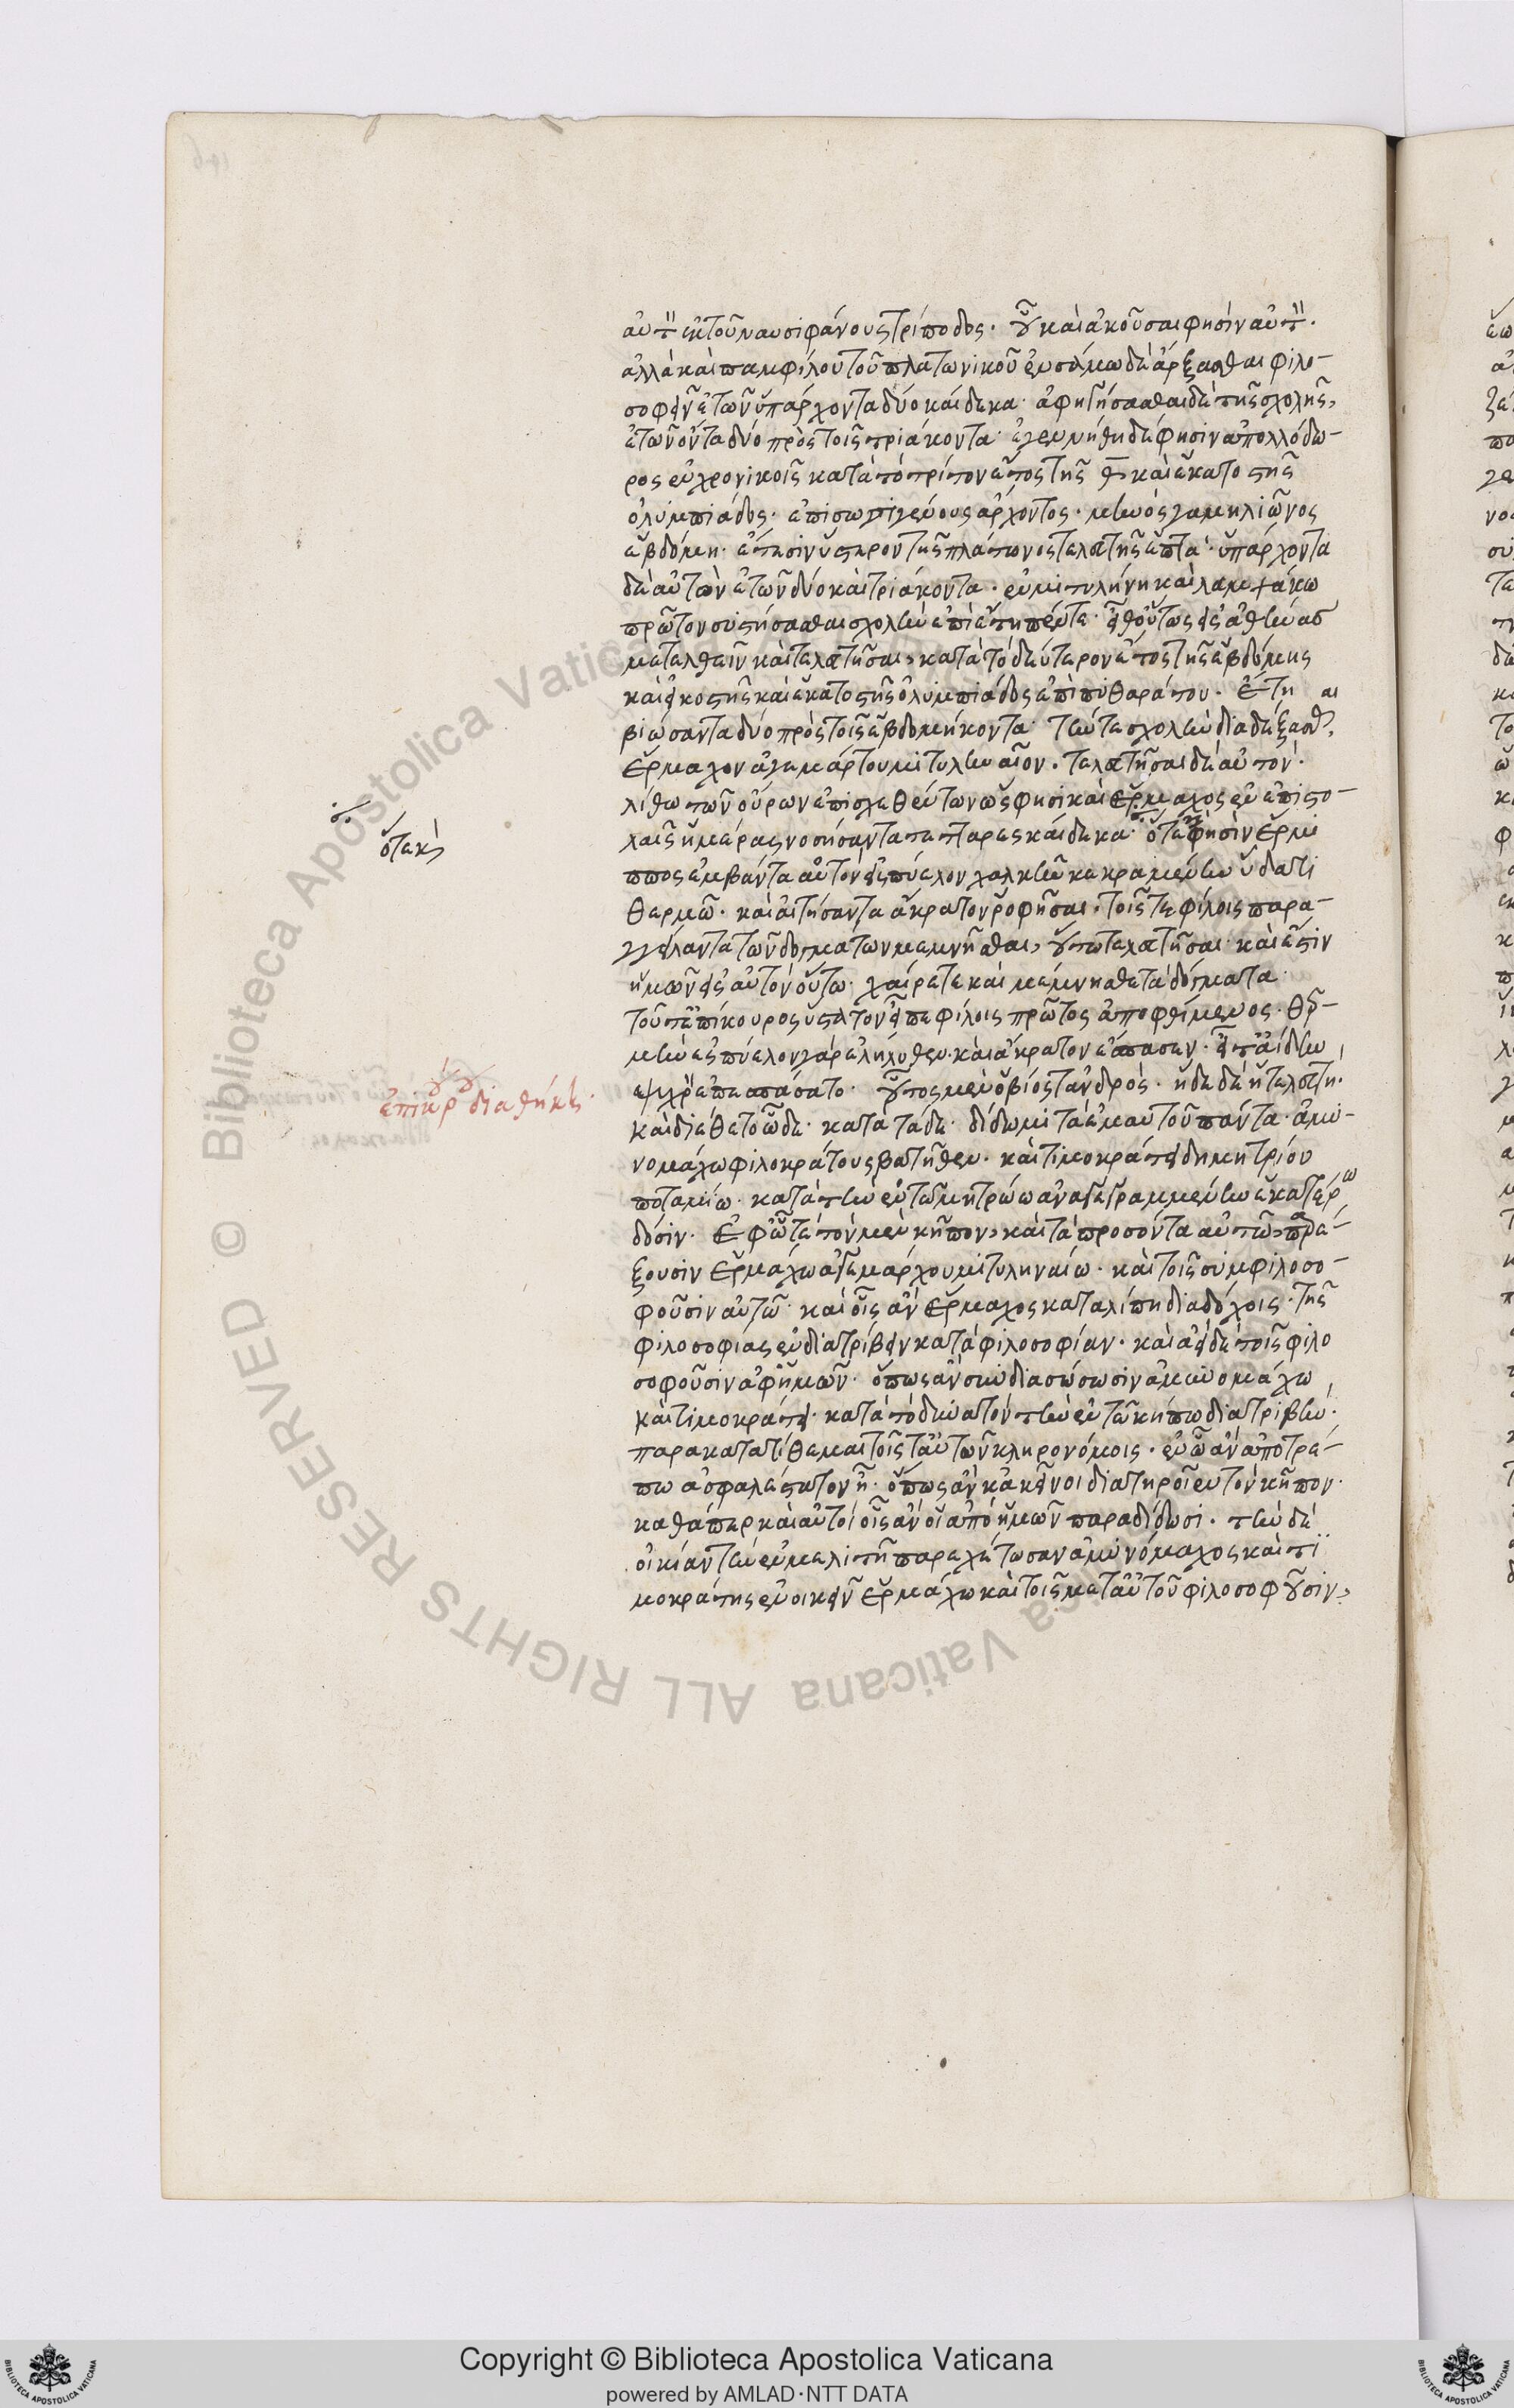 αὐτὸν ἐκ τοῦ ναυσιφάνους τρίποδος. οὗ καὶ ἀκοῦσαι φησὶν αὐτὸν.
ἀλλὰ καὶ παμφίλου τοῦ πλατωνικοῦ ἐν σάμω δὲ ἄρξασθαι φιλο-
σοφεῖν ἐτῶν ὑπάρχοντα δύο καίδεκα. ἀφηγήσασθαι δὲ τῆς σχολῆς,
ἐτῶν ὄντα δύο πρὸς τοῖς τριάκοντα. ἐγεννήθη δέ φησιν ἀπολλόδω-
ρος ἐν χρονικοῖς κατὰ τὸ τρίτον ἔτος τῆς θ καὶ ἑκατοστῆς
ὀλυμπιάδος. ἐπὶ σωσιγένους ἄρχοντος. μηνὸς γαμηλιῶνος
ἑβδόμη. ἔτεσιν ὕστερον τῆς πλάτωνος τελευτῆς ἑπτά. ὑπάρχοντα
δὲ αὐτὸν ἐτῶν δύο καὶ τριάκοντα. ἐν μιτυλήνη καὶ λαμψάκω
πρῶτον συστήσασθαι σχολὴν ἐπὶ ἔτη πέντε. εἶθ οὕτως εἰς ἀθήνας
μετελθεῖν καὶ τελευτῆσαι, κατὰ τὸ δεύτερον ἔτος τῆς ἑβδόμης
καὶ εἰκοστῆς καὶ ἑκατοστῆς ὀλυμπιάδος ἐπὶ πυθαράτου. ἔτη
βιώσαντα δύο πρὸς τοῖς ἑβδομήκοντα. τήν τε σχολὴν διαδέξασθαι
ἕρμαχον ἀγεμάρτου μιτυληναῖον. τελευτῆσαι δὲ αὐτὸν.
λίθω τῶν οὔρων ἐπισχεθέντων ὥς φησι καὶ ἕρμαχος ἐν ἐπιστο-
λαῖς ἡμέρας νοσήσαντα τετταρεσκαίδεκα. ὅτε φησὶν ἕρμι
ὅτε καὶ
ππος ἐμβάντα αὐτὸν εἰς πύελον χαλκῆν κεκραμένην ὕδατι
θερμῶ. καὶ αἰτήσαντα ἄκρατον ῥοφῆσαι. τοῖς τε φίλοις παρα-
γγείλαντα τῶν δογμάτων μεμνῆσθαι, οὕτω τελευτῆσαι. καὶ ἔστιν
ἡμῶν εἰς αὐτὸν οὕτω. χαίρετε καὶ μέμνησθε τὰ δόγματα.
τοῦτ ἐπίκουρος ὕστατον εἶπε φίλοις πρῶτος ἀποφθίμενος. θερ-
μὴν ἐς πύελον γὰρ ἐληλύθεεν. καὶ ἄκρατον ἔσπασεν. εἶτ ἀίδην
ἐπικούρου διαθῆκαι.
ψυχρὸν ἐπεσπάσατο. οὗτος μὲν ὁ βίος τἀνδρὸς. ἥδε δὲ ἡ τελευτή.
καὶ διέθετο ὧδε. κατὰ τάδε δίδωμι τὰ ἐμαυτοῦ πάντα. ἀμυ-
νομάχω φιλοκράτους βατῆθεν. καὶ τιμοκράτει δημητρίου
ποταμίω. κατὰ τὴν ἐν τῶ μητρώω ἀναγεγραμμένην ἑκατέρω
δόσιν. ἐφ ὧτε τὸν μὲν κῆπον, καὶ τὰ προσόντα αὐτῶ, παρέ-
ξουσιν ἑρμάχω ἀγεμάρχου μιτυληναίω. καὶ τοῖς συμφιλοσο-
φοῦσιν αὐτῶ. καὶ οἷς ἂν ἕρμαχος καταλίπη διαδόχοις. τῆς
φιλοσοφίας ἐνδιατρίβειν κατὰ φιλοσοφίαν. καὶ ἀεὶ δὲ τοῖς φιλο
σοφοῦσιν ἀφ ἡμῶν. ὅπως ἂν συνδιασώσωσιν ἀμυνομάχω
καὶ τιμοκράτει. κατὰ τὸ δυνατὸν τὴν ἐν τῶ κήπω διατριβήν.
παρακατατίθεμαι τοῖς τ αὐτῶν κληρονόμοις. ἐν ὧ ἂν ἀποτρέ-
πω ἀσφαλέστατον ἦ. ὅπως ἂν κἀκεῖνοι διατηροῖεν τὸν κῆπον.
καθάπερ καὶ αὐτοὶ οἷς ἂν οἱ ἀπὸ ἡμῶν παραδίδωσι. τὴν δὲ
οἰκίαν τὴν ἐν μελίτη παρεχέτωσαν ἀμυνόμαχος καὶ τι
μοκράτης ἐνοικεῖν ἑρμάχω καὶ τοῖς μετ αὐτοῦ φιλοσοφοῦσιν,
Copyright © Biblioteca Apostolica Vaticana
powered by AMLAD·NTT DATA